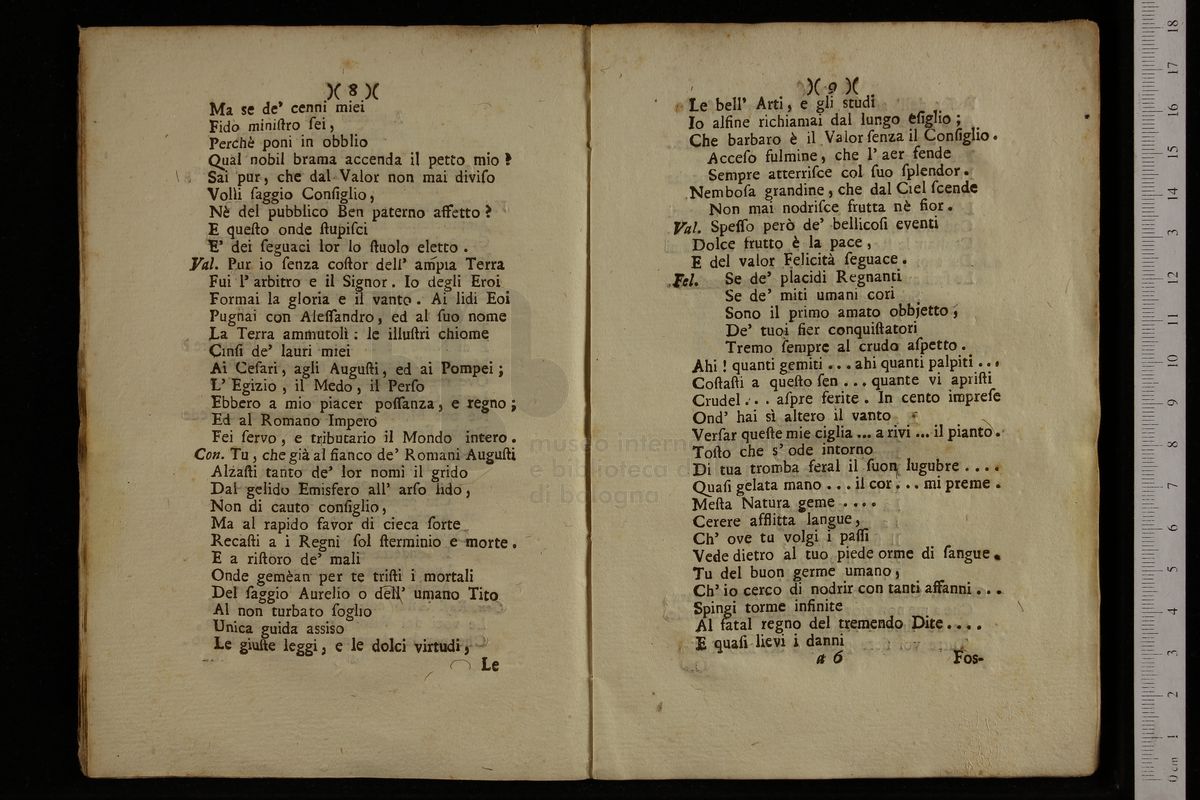 )( 8 )(
Ma se de' cenni miei
Fido miniſtro ſei,
Perchè poni in obblio
Qual nobil brama accenda il petto mio?
Sai pur, che dal Valor non mai diviſo
Volli ſaggio Conſiglio,
Nè del pubblico Ben paterno affetto?
E queſto onde ſtupiſci
E' dei ſeguaci lor lo ſtuolo eletto.
Val. Pur io ſenza coſtor dell' ampia Terra
Fui l' arbitro e il Signor. Io degli Eroi
Formai la gloria e il vanto. Ai lidi Eoi
Pugnai con Aleſſandro, ed al ſuo nome
La Terra ammutolì: le illuſtri chiome
Cinſi de' lauri miei
Ai Ceſari, agli Auguſti, ed ai Pompei;
L' Egizio, il Medo, il Perſo
Ebbero a mio piacer poſſanza, e regno;
Ed al Romano Impero
Fei ſervo, e tributario il Mondo intero.
Con. Tu, che già al fianco de' Romani Auguſti
Alzaſti tanto de' lor nomi il grido
Dal gelido Emisfero all' arſo lido,
Non di cauto conſiglio,
Ma al rapido favor di cieca ſorte
Recaſti a i Regni ſol ſterminio e morte.
E a riſtoro de' mali
Onde gemèan per te triſti i mortali
Del ſaggio Aurelio o dell' umano Tito
Al non turbato ſoglio
Unica guida assiso
Le giuſte leggi, e le dolci virtudi,
Le
)( 9 )(
Le bell' Arti, e gli studi
Io alfine richiamai dal lungo eſiglio;
Che barbaro è il Valor ſenza il Conſiglio.
Acceſo fulmine, che l' aer fende
Sempre atterriſce col ſuo ſplendor.
Nemboſa grandine, che dal Ciel ſcende
Non mai nodriſce frutta nè fior.
Val. Speſſo però de' bellicoſi eventi
Dolce frutto è la pace,
E del valor Felicità ſeguace.
Fel. Se de' placidi Regnanti
Se de' miti umani cori
Sono il primo amato obbjetto,
De' tuoi fier conquiſtatori
Tremo ſempre al crudo aſpetto.
Ahi! quanti gemiti ... ahi quanti palpiti ...
Coſtaſti a queſto ſen ... quante vi apriſti
Crudel ... aſpre ferite. In cento impreſe
Ond' hai sì altero il vanto
Verſar queſte mie ciglia ... a rivi ... il pianto.
Toſto che s' ode intorno
Di tua tromba feral il ſuon lugubre ....
Quaſi gelata mano ... il cor ... mi preme.
Meſta Natura geme ....
Cerere afflitta langue,
Ch' ove tu volgi i paſſi
Vede dietro al tuo piede orme di ſangue.
Tu del buon germe umano,
Ch' io cerco di nodrir con tanti affanni ...
Spingi torme infinite
Al fatal regno del tremendo Dite ....
E quaſi lievi i danni
a 6 Fos-
museo intern
e biblioteca d
di bologna